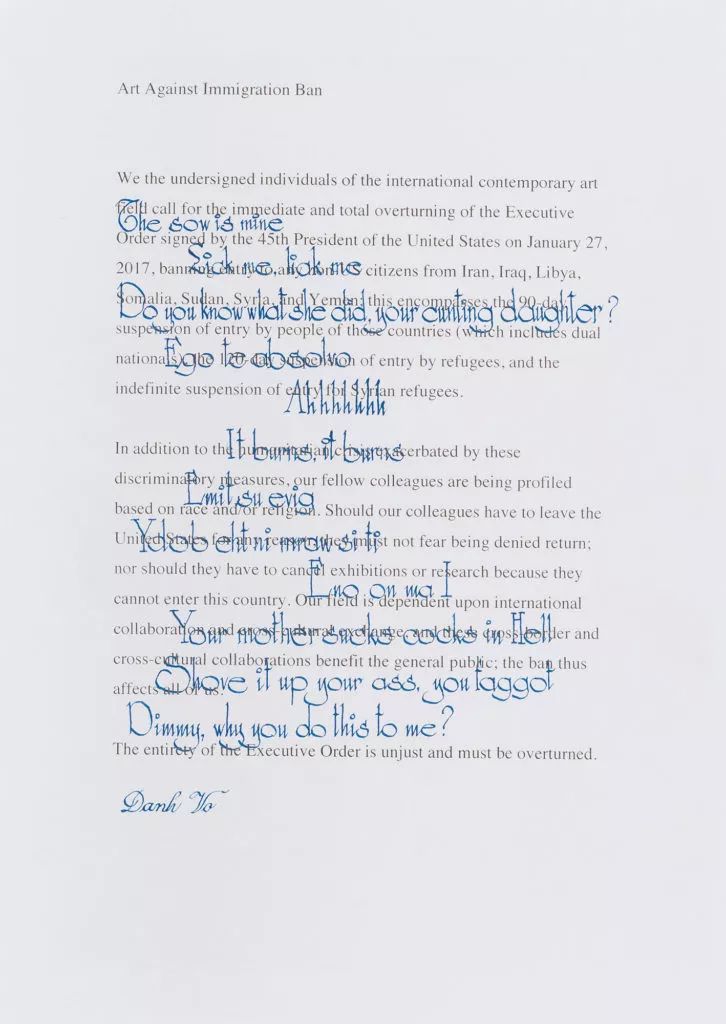 Art Against Immigration Ban
We the undersigned individuals of the international contemporary art
field call for the immediate and total overturning of the Executive
The sow is mine
Order signed by the 45th President of the United States on January 27,
Lick me, lick me
2017, banning entry to any non-US citizens from Iran, Iraq, Libya,
Somalia, Sudan, Syria, and Yemen; this encompasses the 90-day
Do you know what she did, your cunting daughter?
suspension of entry by people of those countries (which includes dual
Ego te absolvo
nationals), the 120-day suspension of entry by refugees, and the
indefinite suspension of entry for Syrian refugees.
Ahhhhhhh
It burns, it burns
In addition to the humanitarian crisis exacerbated by these
discriminatory measures, our fellow colleagues are being profiled
Emit su evig
based on race and/or religion. Should our colleagues have to leave the
Ydob eht ni mrow si ti
United States for any reason, they must not fear being denied return;
nor should they have to cancel exhibitions or research because they
Eno on ma I
cannot enter this country. Our field is dependent upon international
collaboration and cross-cultural exchange, and these cross-border and
Your mother sucks cocks in Hell
cross-cultural collaborations benefit the general public; the ban thus
Shove it up your ass, you faggot
affects all of us.
Dimmy, why you do this to me?
The entirety of the Executive Order is unjust and must be overturned.
Danh Vo